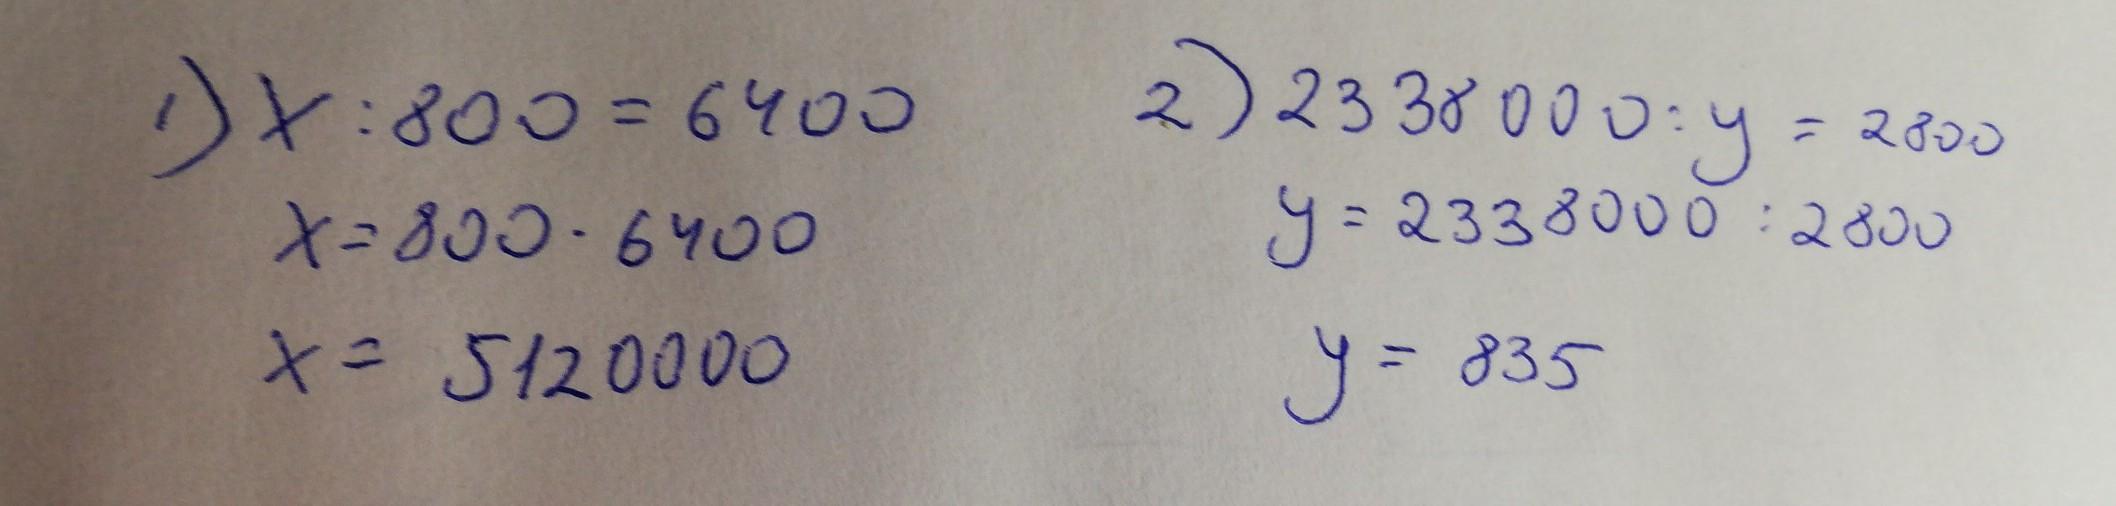 1) x : 800 = 6400
x = 800 · 6400
x = 5120000
2) 2338000 : y = 2800
y = 2338000 : 2800
y = 835